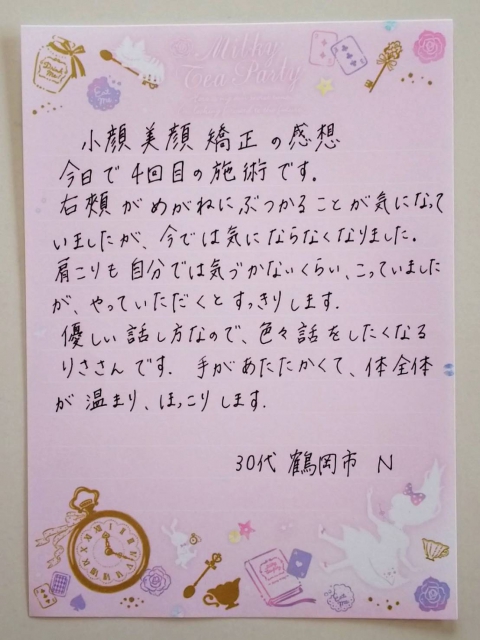 Drink Me!
Milky
Tea Party
Eat Me
小顔美顔矯正の感想
今日で4回目の施術です.
右頬がめがねにぶつかることが気になって
いましたが、今では気にならなくなりました.
肩こりも自分では気づかないくらい、こっていました
が、やっていただくとすっきりします.
優しい話し方なので、色々話をしたくなる
りささんです. 手があたたかくて、体全体
が温まり、ほっこりします.
30代 鶴岡市 N
Eat Me